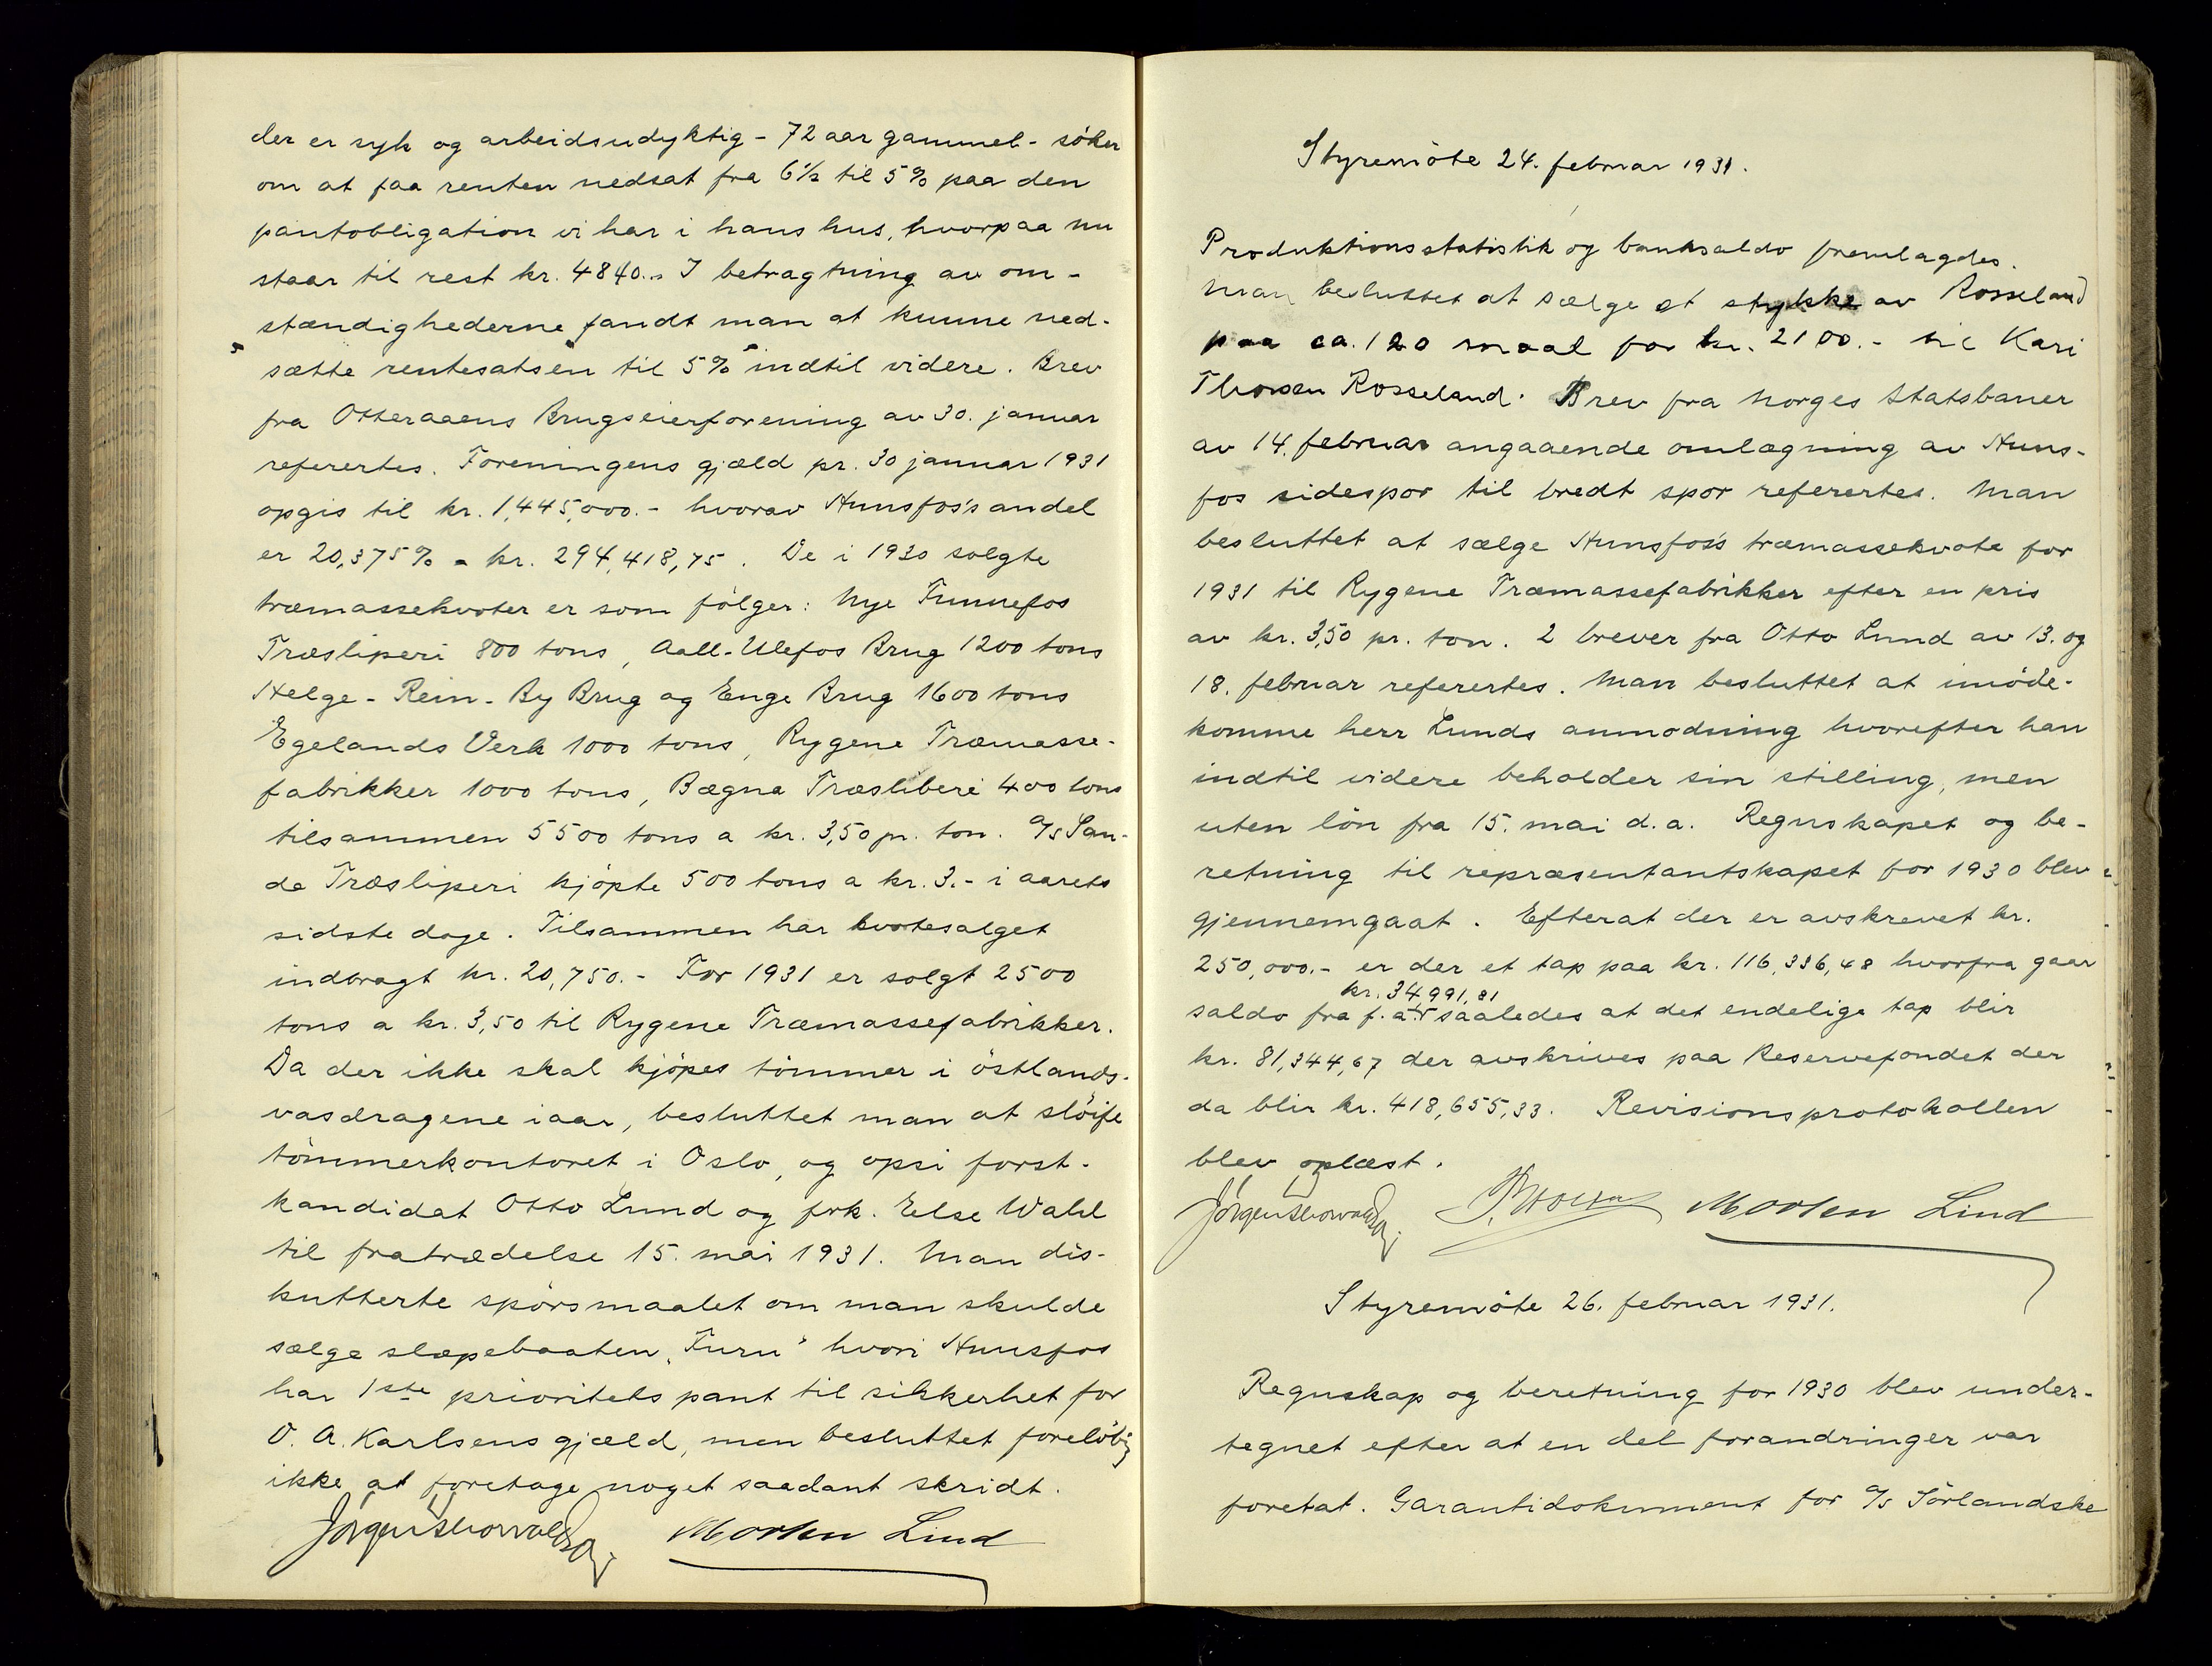 der er syk og arbeidsudyktig - 72 aar gammel - söker
om at faa renten nedsat fra 6½ til 5% paa den
pantobligation vi har i hans hus, hvorpaa nu
staar til rest kr. 4840.- I betragtning av om-
stændighederne fandt man at kunne ned-
sætte rentesatsen til 5% indtil videre. Brev
fra Otteraaens Brugseierforening av 30. januar
referertes. Foreningens gjæld pr. 30 januar 1931
opgis til kr. 1,445,000.- hvorav Hunsfos's andel
er 20,375% = kr. 294,418,75. De i 1930 solgte
træmassekvoter er som fölger: Nye Funnefos
Træsliperi 800 tons, Aall-Ulefos Brug 1200 tons
Helge-Rein-By Brug og Enge Brug 1600 tons
Egelands Verk 1000 tons, Rygene Træmasse-
fabrikker 1000 tons, Bægna Træsliberi 400 tons
tilsammen 5500 tons a kr. 3,50 pr. ton. A/s San-
de Træsliperi kjöpte 500 tons a kr. 3.- i aarets
sidste dage. Tilsammen har kvotesalget
indbragt kr. 20,750.- For 1931 er solgt 2500
tons a kr. 3,50 til Rygene Træmassefabrikker.
Da der ikke skal kjöpes tömmer i östlands-
vasdragene iaar, besluttet man at slöife
tömmerkontoret i Oslo, og opsi forst-
kandidat Otto Lund og frk. Else Wahl
til fratrædelse 15. mai 1931. Man dis-
kutterte spörsmaalet om man skulde
sælge slæpebaaten "Furu" hvori Hunsfos
har 1ste prioritets pant til sikkerhet for
O. A. Karlsens gjæld, men besluttet forelöbig
ikke at foretage noget saadant skridt.
Morten Lind
Styremöte 24. februar 1931.
Produktionsstatistik og banksaldo fremlagdes.
Man besluttet at sælge et stykke av Rosseland
paa ca. 120 maal for kr. 2100.- til Kari
Thorsen Rosseland. Brev fra Norges Statsbaner
av 14. februar angaaende omlægning av Huns-
fos sidespor til bredt spor referertes. Man
besluttet at sælge Hunsfos's træmassekvote for
1931 til Rygene Træmassefabrikker efter en pris
av kr. 3,50 pr. ton. 2 brever fra Otto Lund av 13. og
18. februar referertes. Man besluttet at imöde-
komme herr Lunds anmodning hvorefter han
indtil videre beholder sin stilling, men
uten lön fra 15. mai d.a. Regnskapet og be-
retning til repræsentantskapet for 1930 blev
gjennemgaat. Efterat der er avskrevet kr.
250,000.- er der et tap paa kr. 116,336,48 hvorfra gaar
kr. 34,991,81
saldo fra f. år saaledes at det endelige tap blir
kr. 81,344,67 der avskrives paa Reservefondet der
da blir kr. 418,655,33. Revisionsprotokollen
blev oplæst.
Morten Lind
Styremöte 26. februar 1931.
Regnskap og beretning for 1930 blev under-
tegnet efter at en del forandringer var
foretat. Garantidokument for A/s Sörlandske